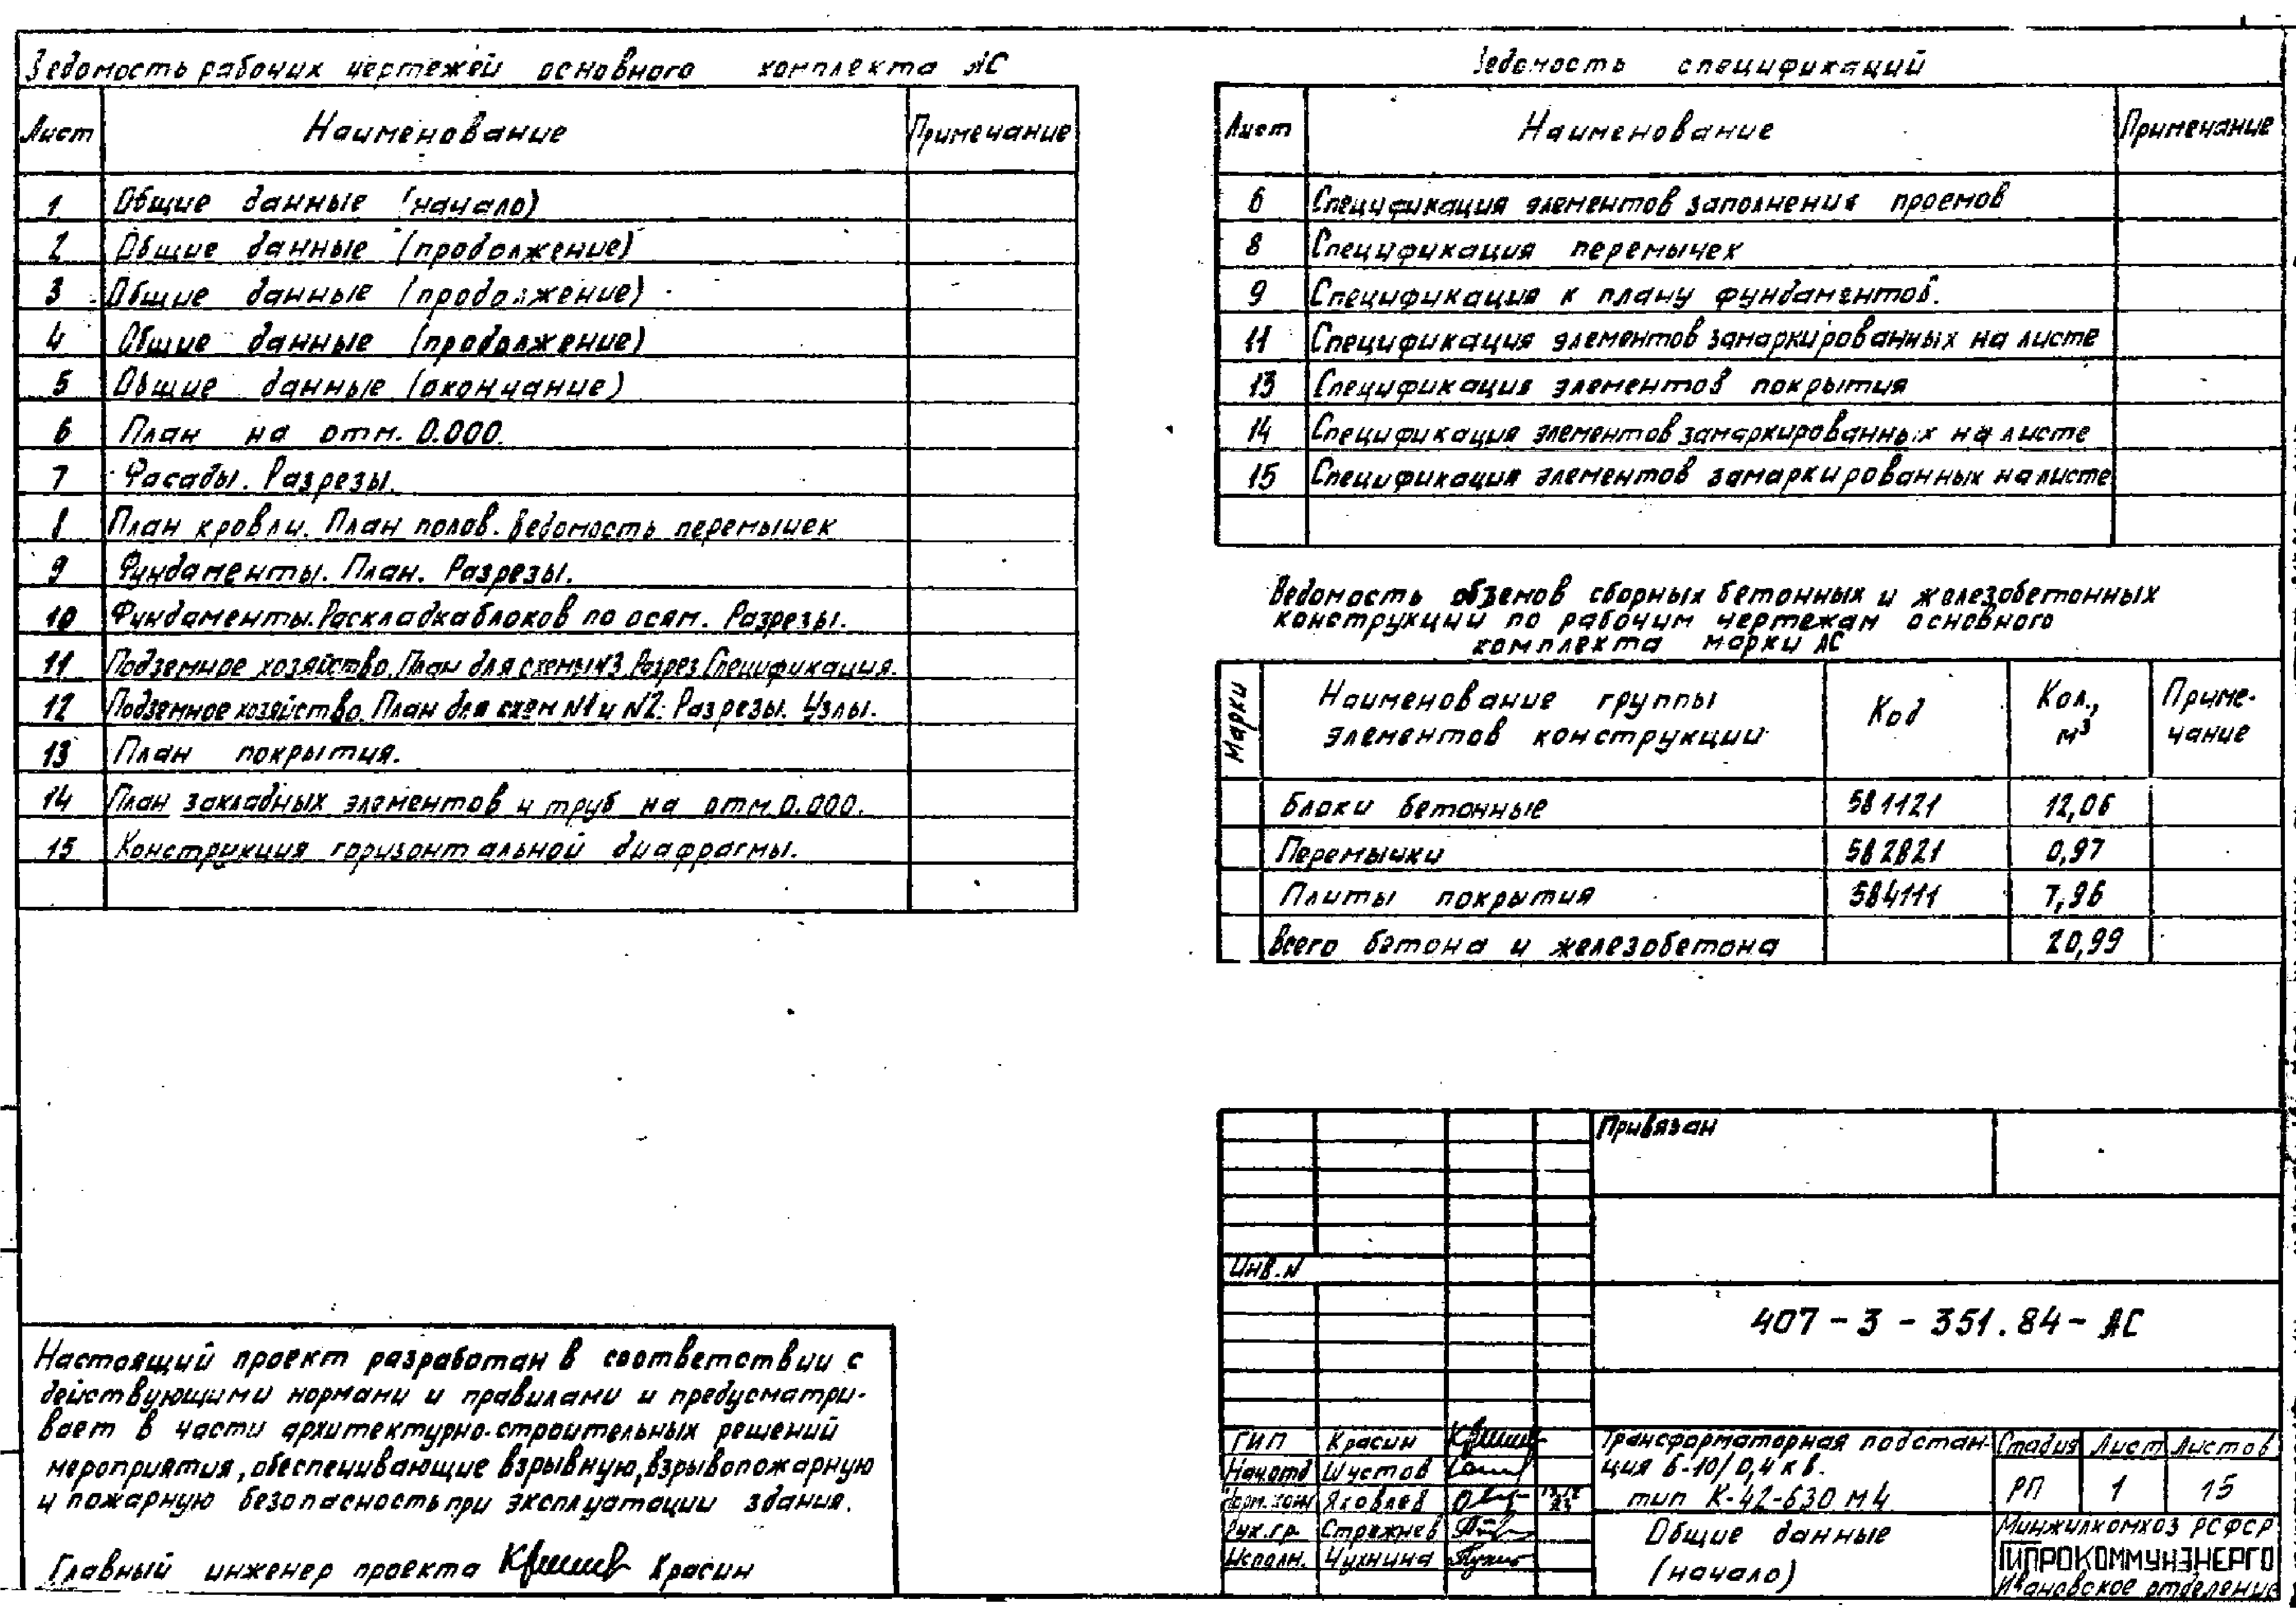 Ведомость рабочих чертежей основного комплекта АС
Лист Наименование Примечание
1 Общие данные (начало)
2 Общие данные (продолжение)
3 Общие данные (продолжение)
4 Общие данные (продолжение)
5 Общие данные (окончание)
6 План на отм. 0.000.
7 Фасады. Разрезы.
8 План кровли. План полов. Ведомость перемычек
9 Фундаменты. План. Разрезы.
10 Фундаменты. Раскладка блоков по осям. Разрезы.
11 Подземное хозяйство. План для схемы N3. Разрез. Спецификация.
12 Подземное хозяйство. План для схем N1 и N2. Разрезы. Узлы.
13 План покрытия.
14 План закладных элементов и труб на отм. 0.000.
15 Конструкция горизонтальной диафрагмы.
Ведомость спецификаций
Лист Наименование Примечание
6 Спецификация элементов заполнения проемов
8 Спецификация перемычек
9 Спецификация к плану фундаментов.
11 Спецификация элементов замаркированных на листе
13 Спецификация элементов покрытия
14 Спецификация элементов замаркированных на листе
15 Спецификация элементов замаркированных на листе
Ведомость объемов сборных бетонных и железобетонных
конструкции по рабочим чертежам основного
комплекта марки АС
Марки Наименование группы элементов конструкции Код Кол., м³ Приме-чание
Блоки бетонные 581121 12,06
Перемычки 582821 0,97
Плиты покрытия 584111 7,96
Всего бетона и железобетона 20,99
Настоящий проект разработан в соответствии с
действующими нормами и правилами и предусматри-
вает в части архитектурно-строительных решений
мероприятия, обеспечивающие взрывную, взрывопожарную
и пожарную безопасность при эксплуатации здания.
Главный инженер проекта Красин
Привязан
Инв. N
407-3-351.84-АС
ГИП Красин
Нач.отд Шустов
Норм.конт Яковлев
Рук.гр. Стрежнев
Исполн. Чухнина
Трансформаторная подстан-
ция 6-10/0,4 кв.
тип К-42-630 М4
Стадия Лист Листов
РП 1 15
Общие данные
(начало)
Минжилкомхоз РСФСР
ГИПРОКОММУНЭНЕРГО
Ивановское отделение